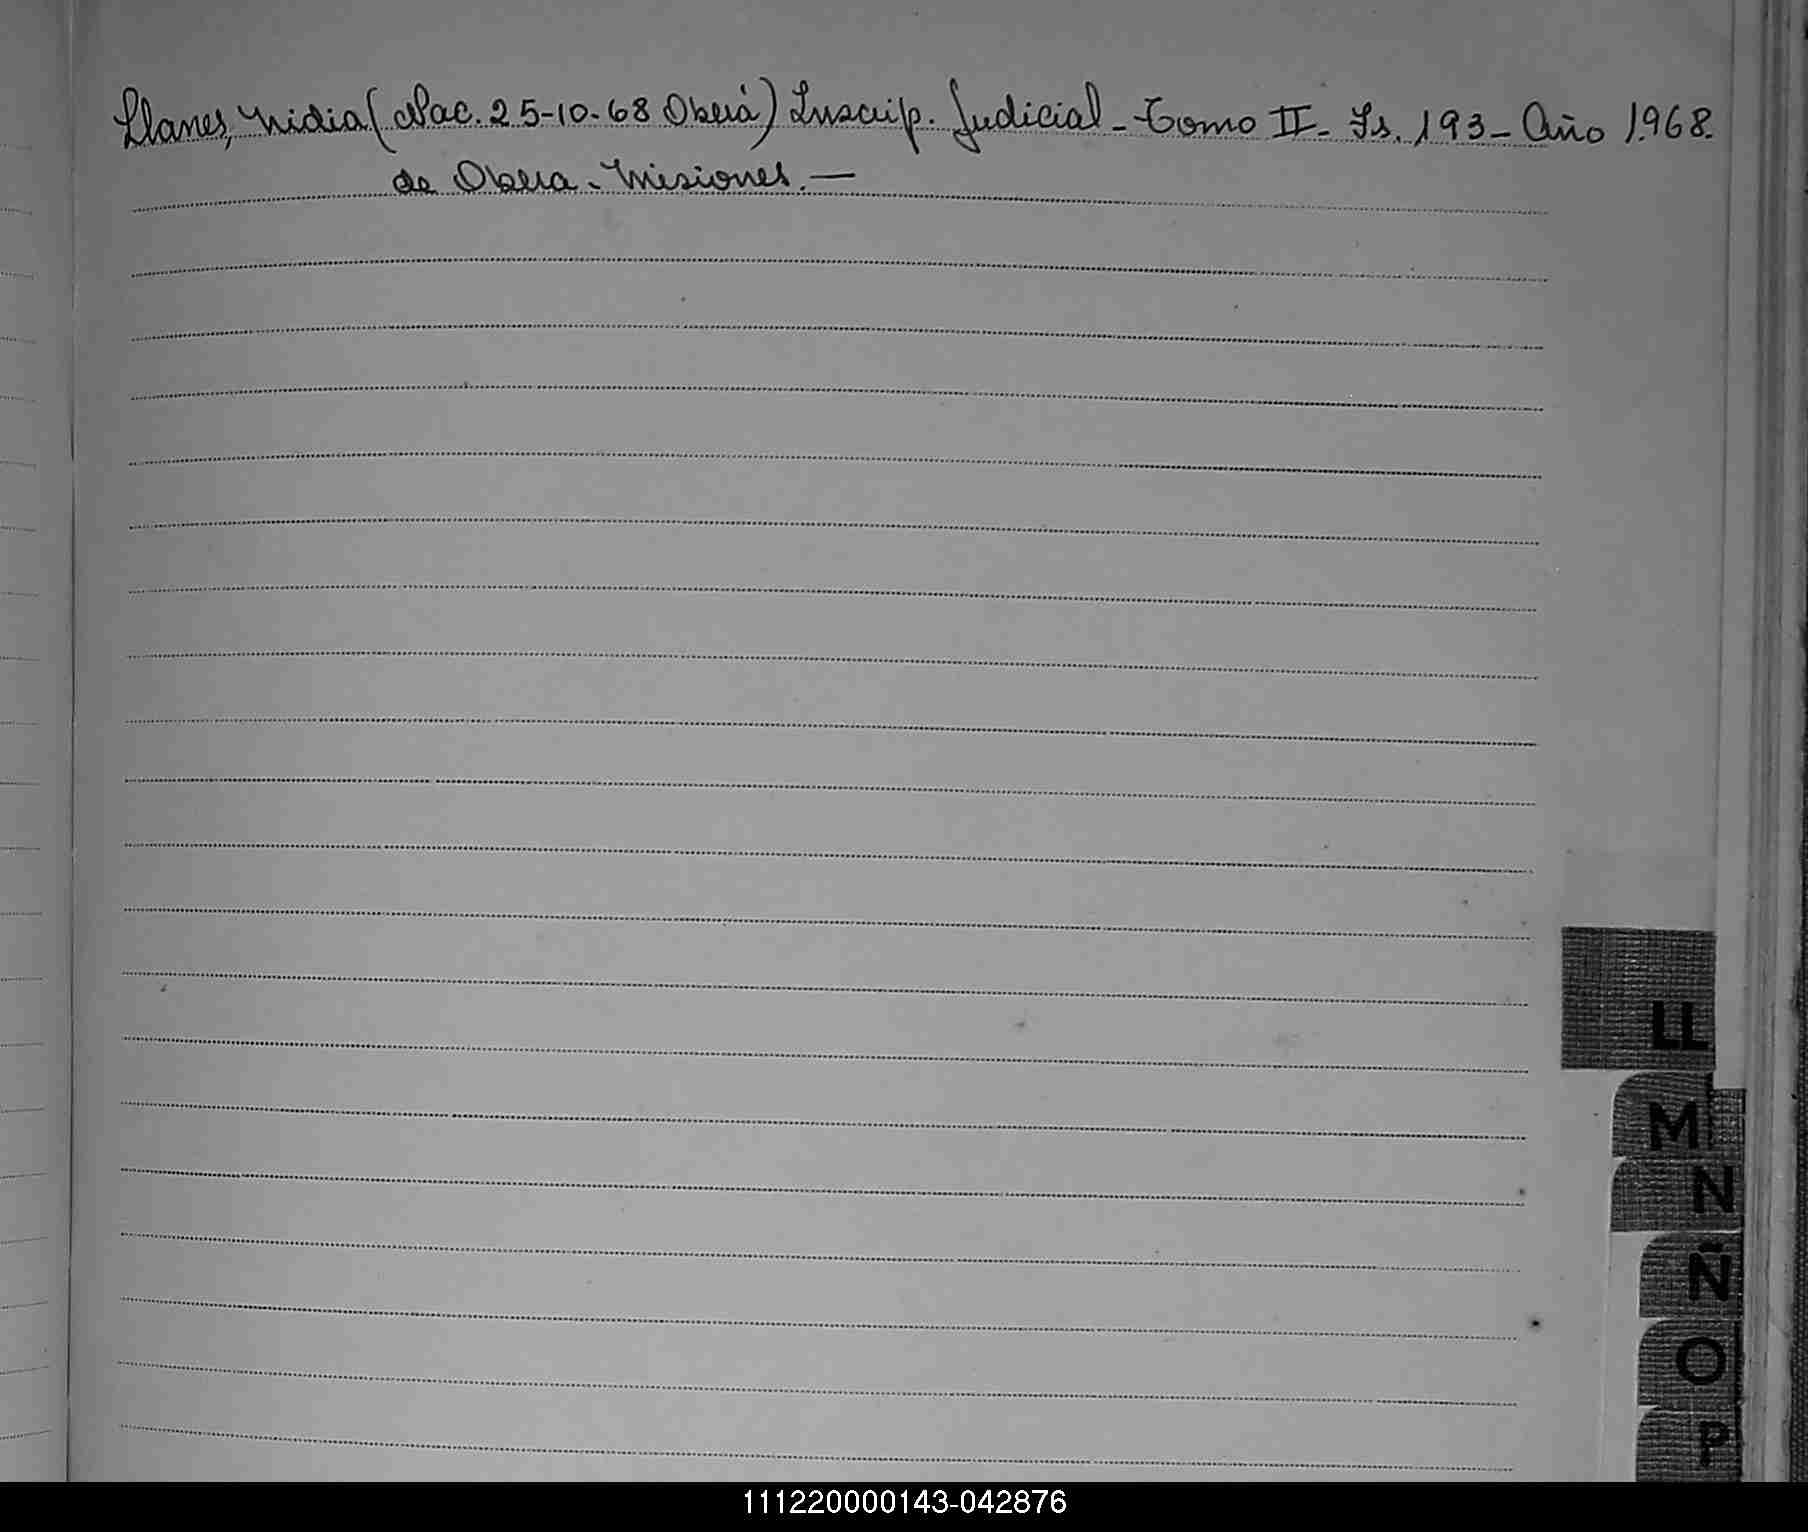 Llanes, Nidia (Nac. 25-10-68 Oberá) Inscrip. Judicial - Tomo II - Fs. 193 - Año 1968.
de Obera - Misiones. —
LL
M
N
Ñ
O
P
111220000143-042876